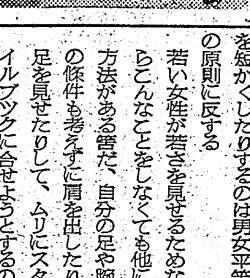 を短かくしたりするのは男女平
の原則に反する
若い女性が若さを見せるためな
らこんなことをしなくても他に
方法がある筈だ、自分の足や腕
の条件も考えずに肩を出したり
足を見せたりして、ムリにスタ
イルブックに合せようとするの